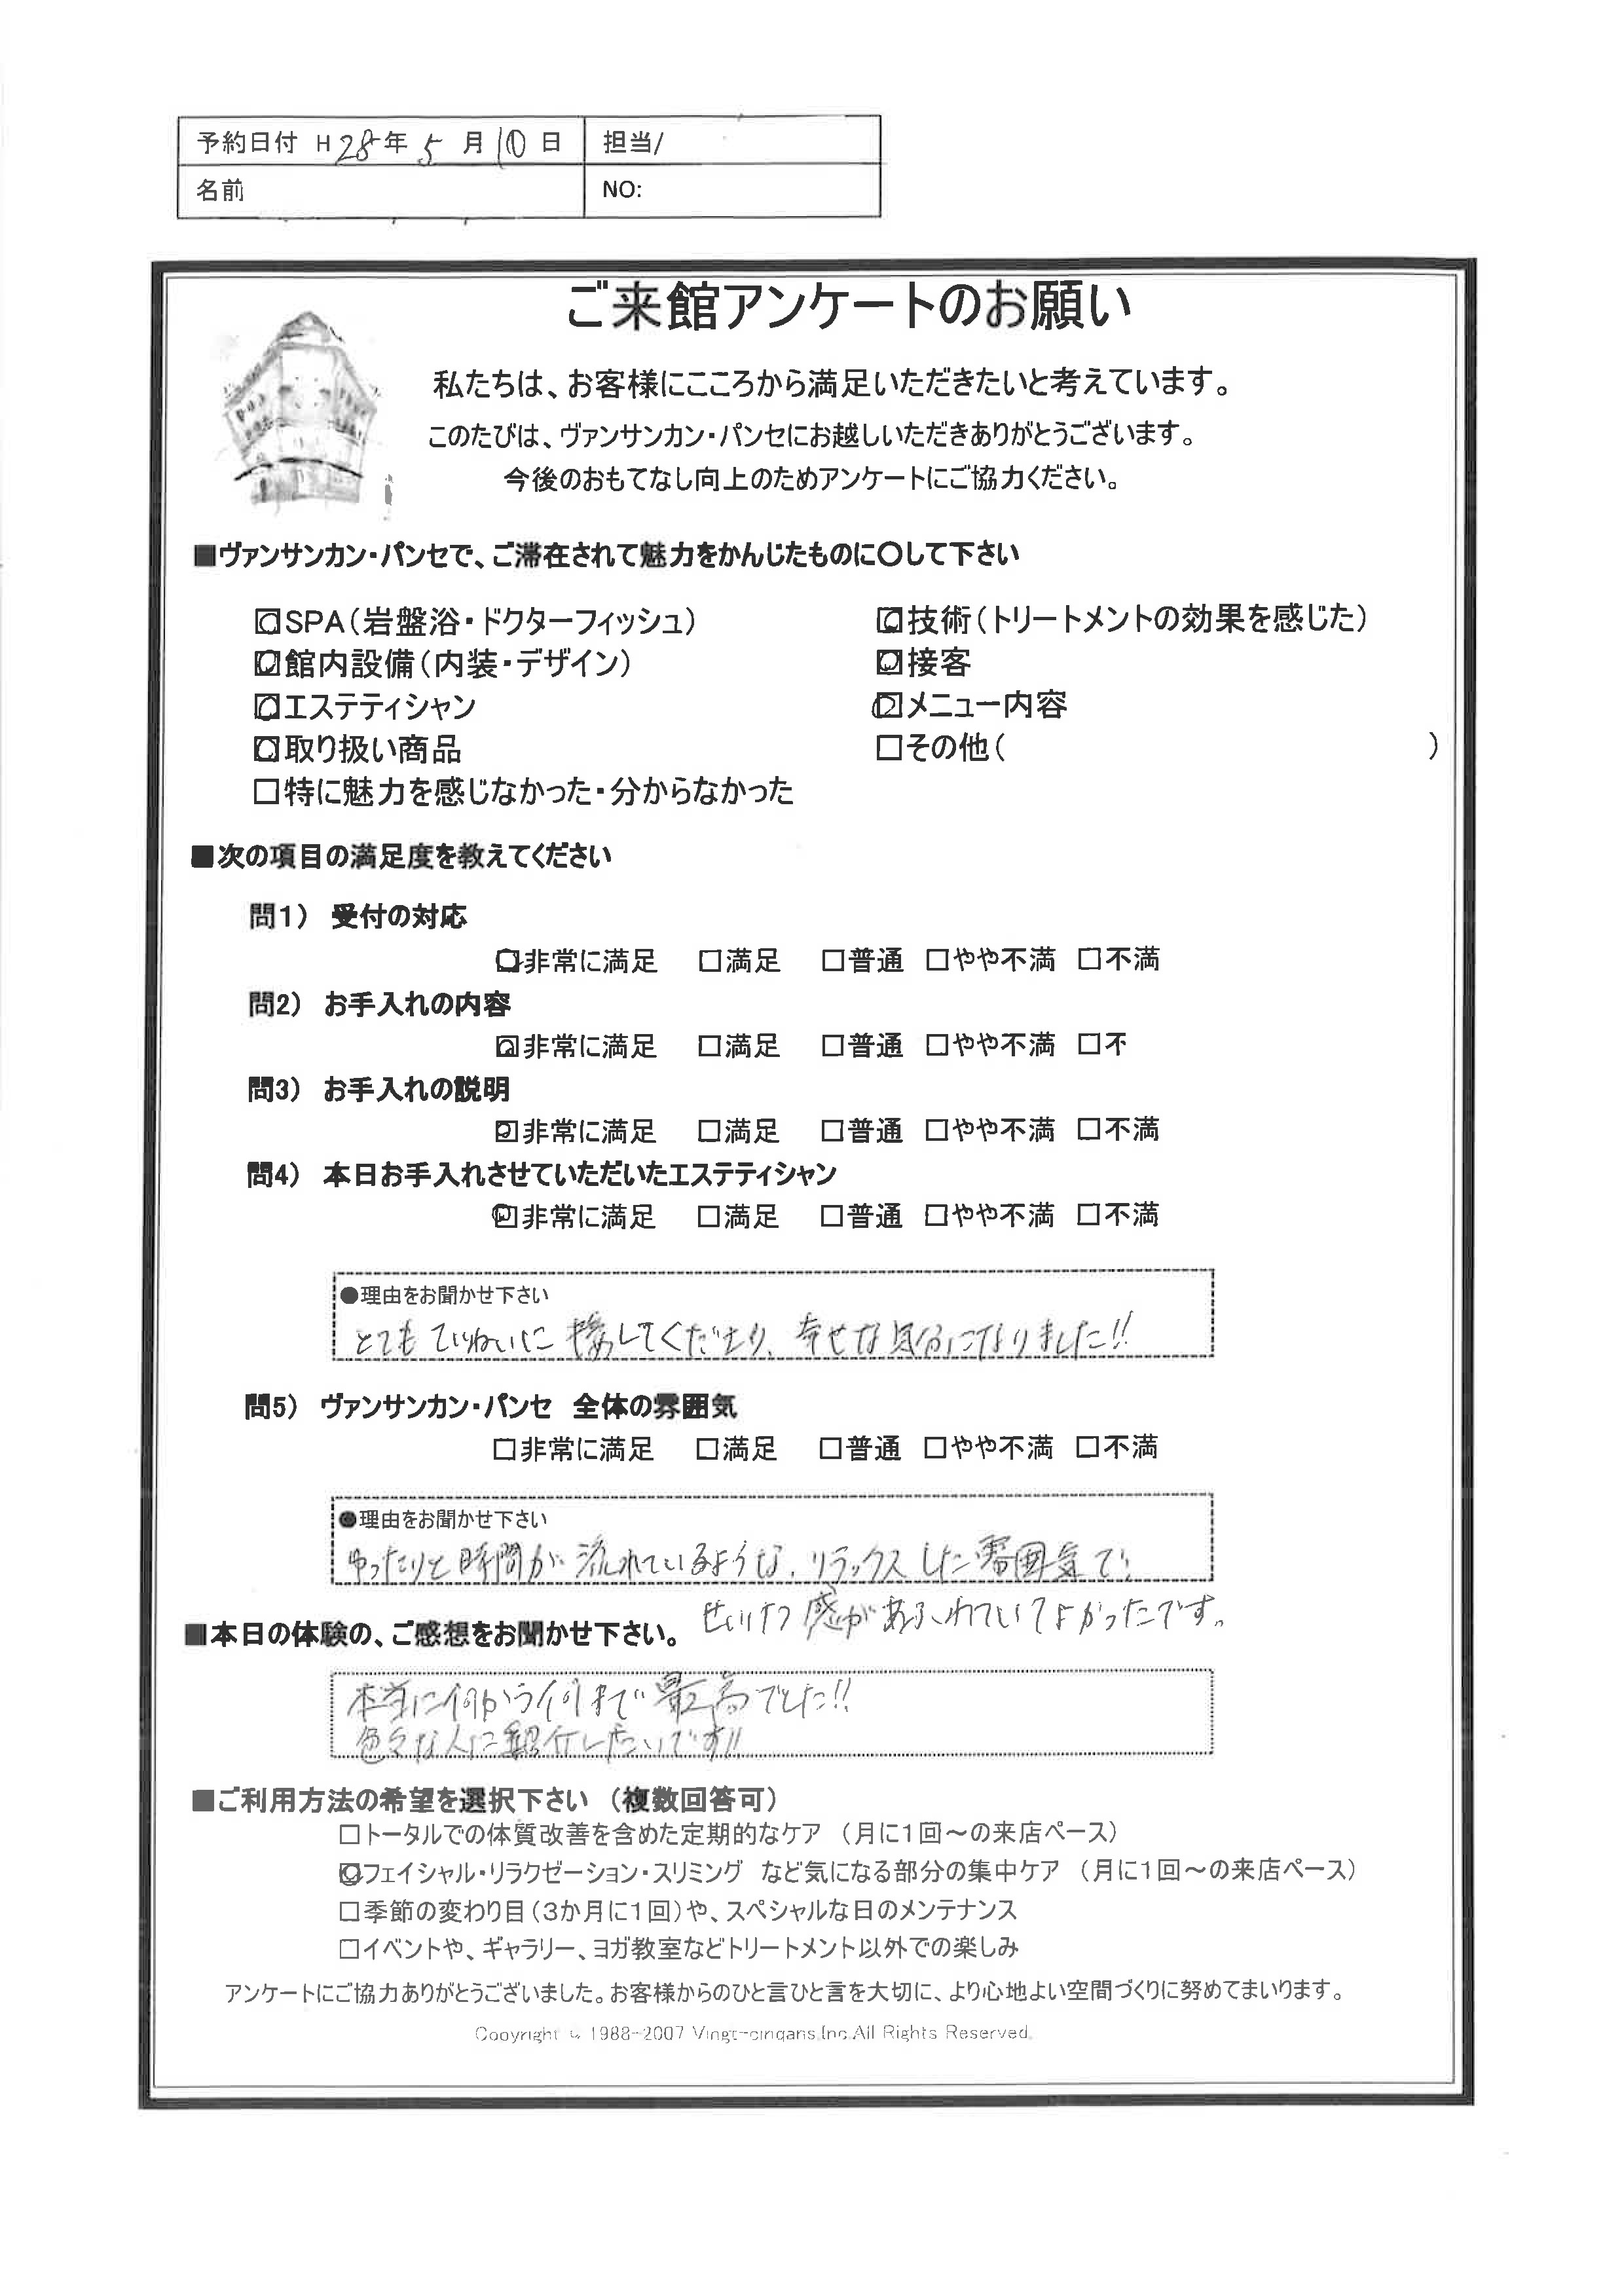 予約日付 H 28年 5 月 10 日 担当/
名前 NO:
ご来館アンケートのお願い
私たちは、お客様にこころから満足いただきたいと考えています。
このたびは、ヴァンサンカン・パンセにお越しいただきありがとうございます。
今後のおもてなし向上のためアンケートにご協力ください。
■ヴァンサンカン・パンセで、ご滞在されて魅力をかんじたものに〇して下さい
□SPA(岩盤浴・ドクターフィッシュ) □技術(トリートメントの効果を感じた)
□館内設備(内装・デザイン) □接客
□エステティシャン □メニュー内容
□取り扱い商品 □その他( )
□特に魅力を感じなかった・分からなかった
■次の項目の満足度を教えてください
問1) 受付の対応
□非常に満足 □満足 □普通 □やや不満 □不満
問2) お手入れの内容
□非常に満足 □満足 □普通 □やや不満 □不
問3) お手入れの説明
□非常に満足 □満足 □普通 □やや不満 □不満
問4) 本日お手入れさせていただいたエステティシャン
□非常に満足 □満足 □普通 □やや不満 □不満
●理由をお聞かせ下さい
とても ていねいに 接してくださり、幸せな気分になりました!!
問5) ヴァンサンカン・パンセ 全体の雰囲気
□非常に満足 □満足 □普通 □やや不満 □不満
●理由をお聞かせ下さい
ゆったりと時間が流れているような、リラックスした雰囲気で、
せいけつ感があふれていてよかったです。
■本日の体験の、ご感想をお聞かせ下さい。
本当に何から何まで最高でした!!
色々な人に紹介したいです!!
■ご利用方法の希望を選択下さい (複数回答可)
□トータルでの体質改善を含めた定期的なケア (月に1回～の来店ペース)
□フェイシャル・リラクゼーション・スリミング など気になる部分の集中ケア (月に1回～の来店ペース)
□季節の変わり目(3か月に1回)や、スペシャルな日のメンテナンス
□イベントや、ギャラリー、ヨガ教室などトリートメント以外での楽しみ
アンケートにご協力ありがとうございました。お客様からのひと言ひと言を大切に、より心地よい空間づくりに努めてまいります。
Copyright © 1988-2007 Vingt-cinqans,Inc.All Rights Reserved.